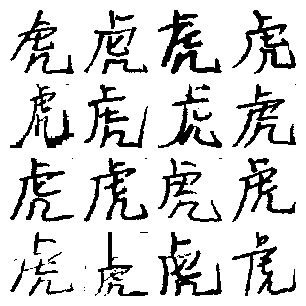 虎虎虎虎
虎虎虎虎
虎虎虎虎
虎虎虎虎